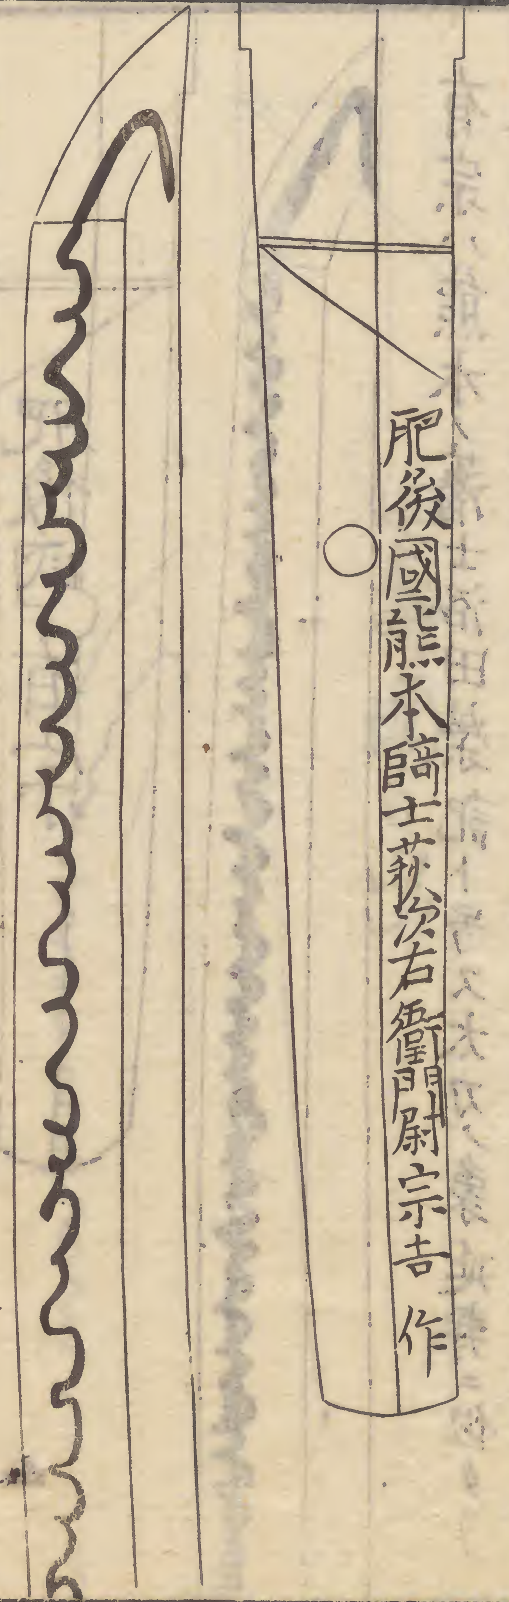 肥後國熊本𩣑士萩次右衛門尉宗吉作